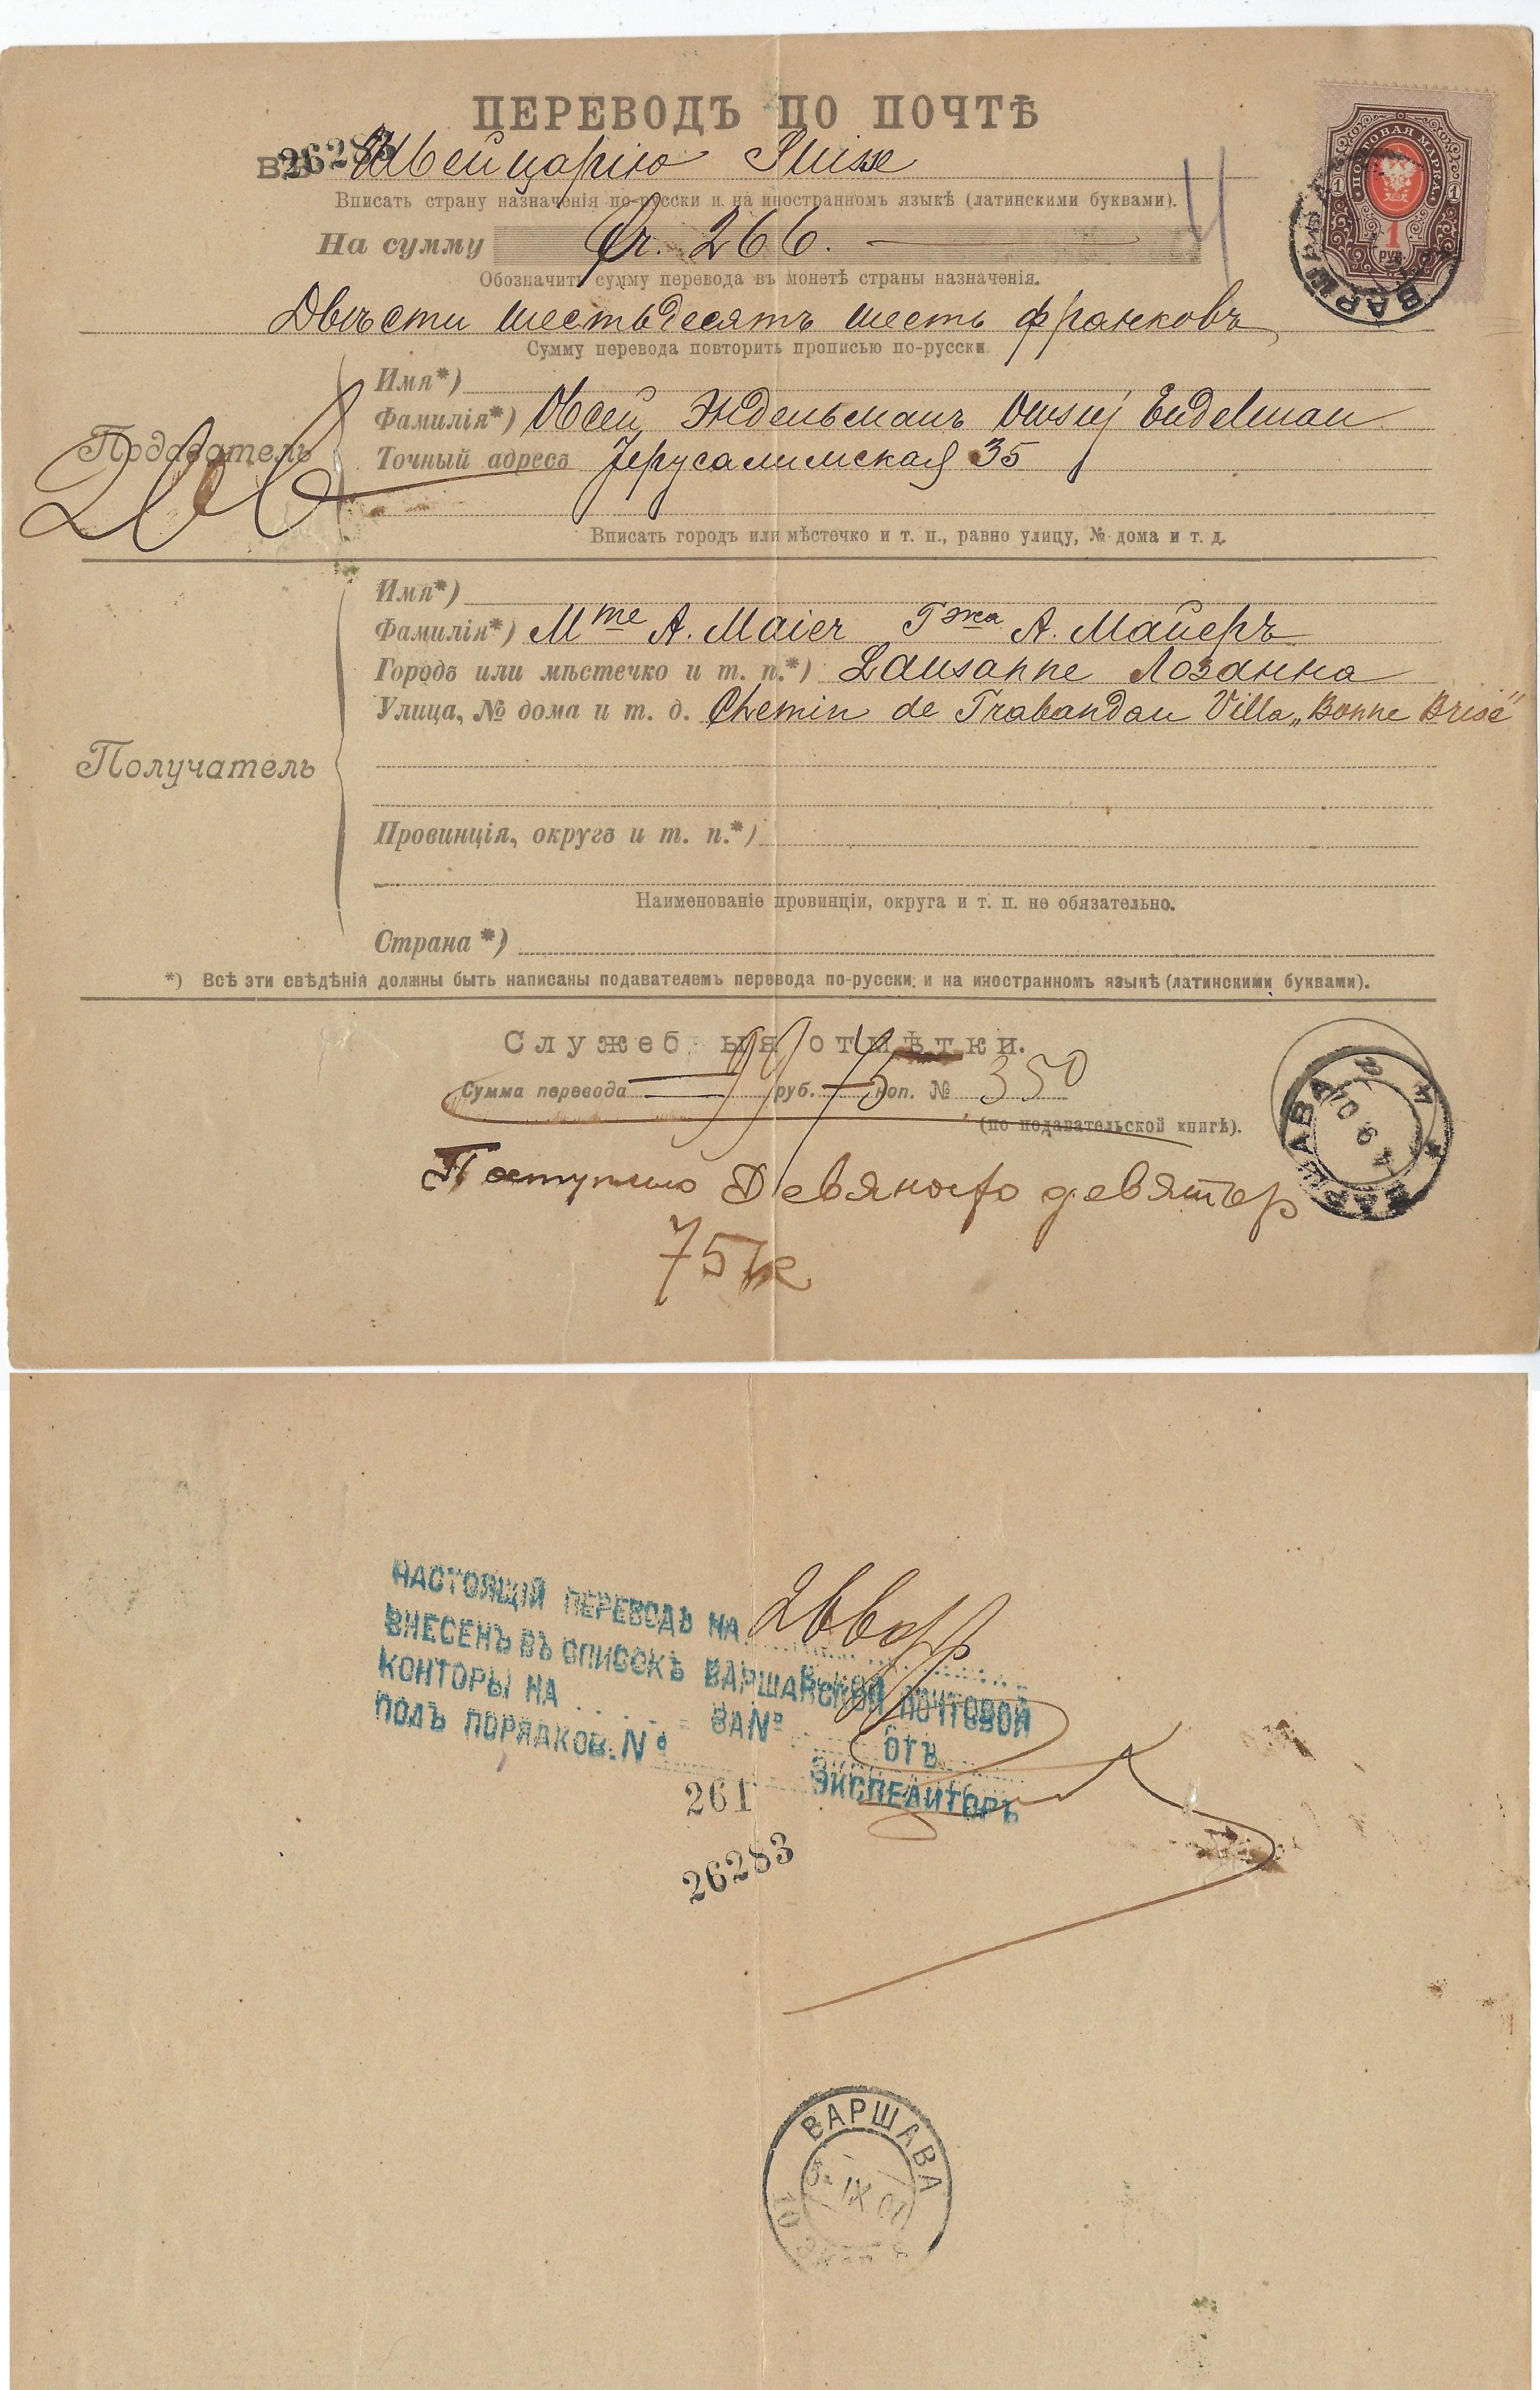 ПЕРЕВОДЪ ПО ПОЧТѢ
ВЪ 26283 Швейцарію Suisse
Вписать страну назначенія по-русски и на иностранномъ языкѣ (латинскими буквами).
На сумму fr. 266.
Обозначить сумму перевода въ монетѣ страны назначенія.
Двѣсти шестьдесятъ шесть франковъ
Сумму перевода повторить прописью по-русски.
ПОЧТОВАЯ МАРКА.
1 1
1
РУБ.
ВАРШАВА
4
Податель
266
Имя*)
Фамилія*) Овсей Эндельманъ Owsiej Endelman
Точный адресъ Іерусалимская 35
Вписать городъ или мѣстечко и т. п., равно улицу, № дома и т. д.
Получатель
Имя*)
Фамилія*) Mme A. Maier Гжа А. Майеръ
Городъ или мѣстечко и т. п.*) Lausanne Лозанна
Улица, № дома и т. д. Chemin de Trabandan Villa „Bonne Brise“
Провинція, округъ и т. п.*)
Наименованіе провинціи, округа и т. п. не обязательно.
Страна *)
*) Всѣ эти свѣдѣнія должны быть написаны подавателемъ перевода по-русски и на иностранномъ языкѣ (латинскими буквами).
Служебныя отмѣтки.
Сумма перевода 99 руб. 75 коп. № 350
(по подавательской книгѣ).
ВАРШАВА
Поступило Девяносто девять р
75 к
НАСТОЯЩІЙ ПЕРЕВОДЪ НА 266 фр
ВНЕСЕНЪ ВЪ СПИСОКЪ ВАРШАВСКОЙ ПОЧТОВОЙ
КОНТОРЫ НА ЗА № ОТЪ
ПОДЪ ПОРЯДКОВ. № ЭКСПЕДИТОРЪ
261
26283
ВАРШАВА
IX 01
10